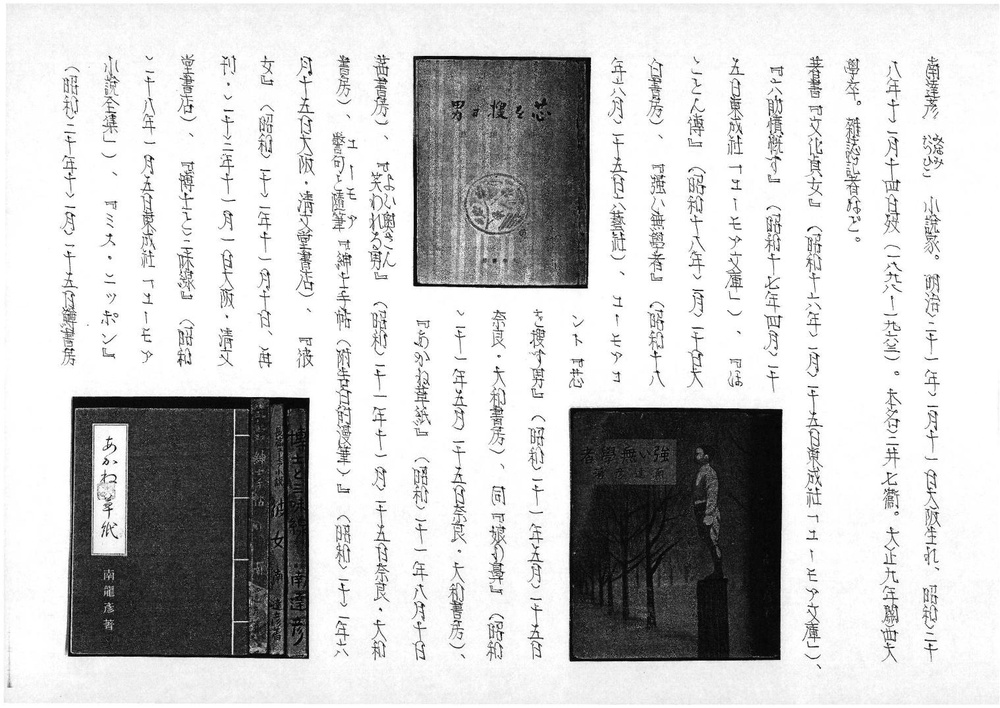 南達彦 みなみたつひこ 小説家。明治三十一年二月十一日大阪生れ、昭和三十
八年十二月十四日歿（一八九八―一九六三）。本名三井七衞。大正九年關西大
學卒。雜誌記者など。
著書『文化貞女』（昭和十六年二月二十五日東成社「ユーモア文庫」）、
『六助憤慨す』（昭和十七年四月二十
五日東成社「ユーモア文庫」）、『ほ
ととん傳』（昭和十八年二月二十日大
白書房）、『强い無學者』（昭和十八
年六月二十五日六藝社）、ユーモアコ
ント『芯
を搜す男』（昭和二十一年五月二十五日
奈良・大和書房）、同『娘の鼻』（昭和
二十一年五月二十五日奈良・大和書房）、
『あかね草紙』（昭和二十一年八月十日
茜書房）、『よい奧さん 笑われる男』（昭和二十一年十一月二十五日奈良・大和
書房）、ユーモア 警句と隨筆『紳士手帖（附告白的漫筆）』（昭和二十二年六
月十五日大阪・清文堂書店）、『液
女』（昭和二十二年十一月十日、再
刊・二十三年十一月一日大阪・清文
堂書店）、『博士と三味線』（昭和
二十八年一月五日東成社「ユーモア
小説全集」）、『ミス・ニッポン』
（昭和二十年十二月二十五日鱒書房
芯を搜す男
强い無學者
南達彦著
博士と三味線 南達彦
液女 南達彦著
紳士手帖
あかね草紙
南龍彦著